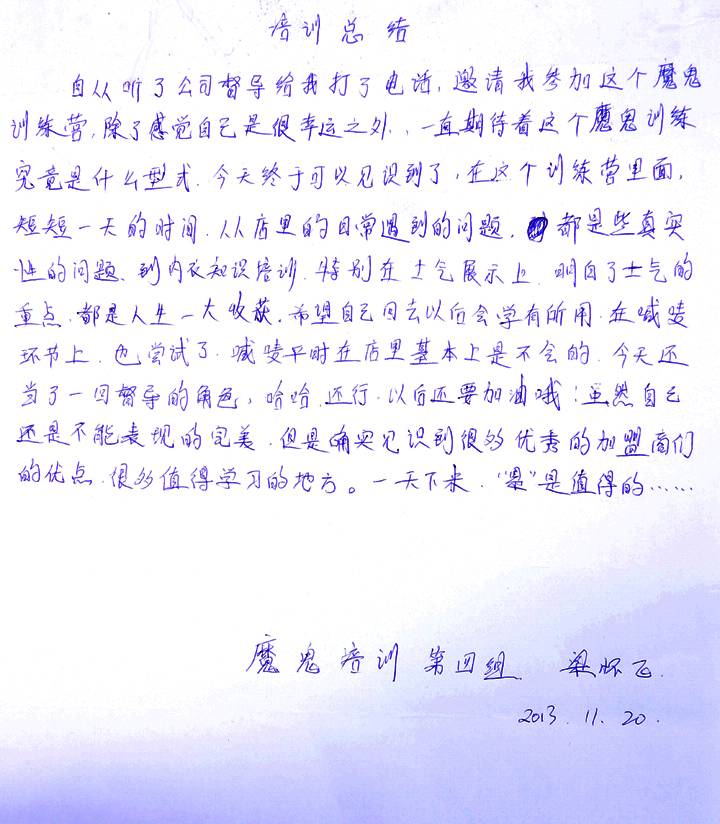 培训总结
自从听了公司督导给我打了电话，邀请我参加这个魔鬼
训练营，除了感觉自己是很幸运之外，一直期待着这个魔鬼训练
究竟是什么型式．今天终于可以见识到了，在这个训练营里面，
短短一天的时间．从店里的日常遇到的问题，都是些真实
性的问题、到内衣知识培训．特别在士气展示上．明白了士气的
重点．都是人生一大收获．希望自己回去以后会学有所用．在喊麦
环节上．也尝试了．喊麦平时在店里基本上是不会的．今天还
当了一回督导的角色，哈哈．还行．以后还要加油哦！虽然自己
还是不能表现的完美．但是确实见识到很多优秀的加盟商们
的优点．很多值得学习的地方。一天下来．"累"是值得的……
魔鬼培训 第四组 梁怀飞
2013.11.20.